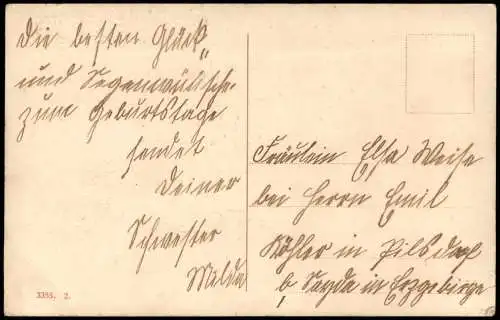 Die besten Glück-
und Segenwünsche
zum Geburtstage
sendet
Deiner
Schwester
Milda
Fräulein Elsa Weise
bei Herrn Emil
Köhler in Pilsdorf
b. Sayda in Erzgebirge
3355. 2.